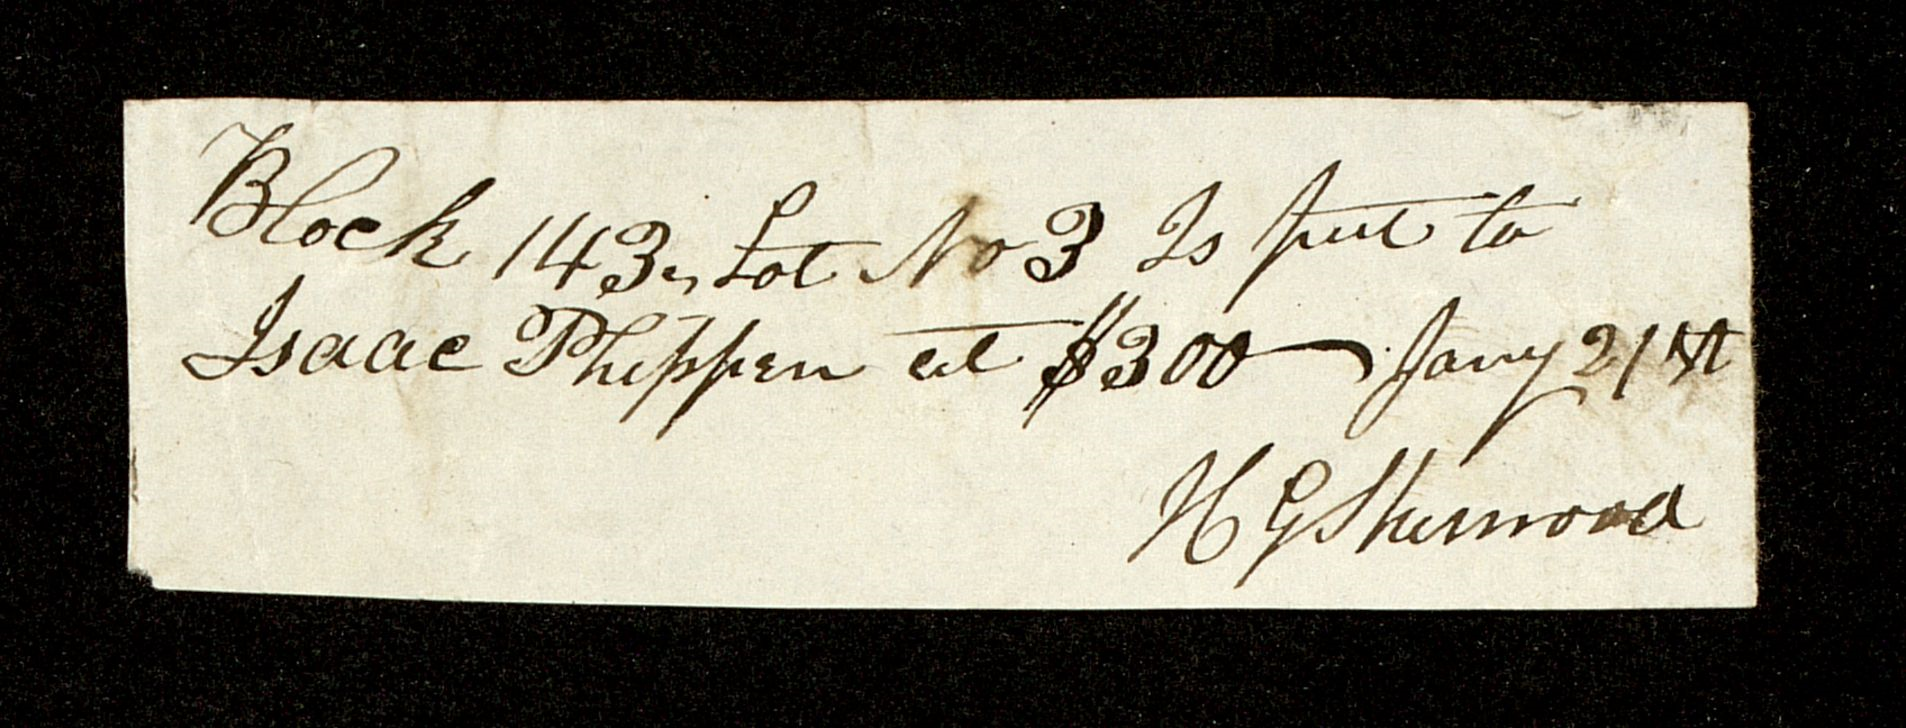 Block 143, Lot No 3 Is put to
Isaac Phippen at $300— Jany 21st
H G Sherwood